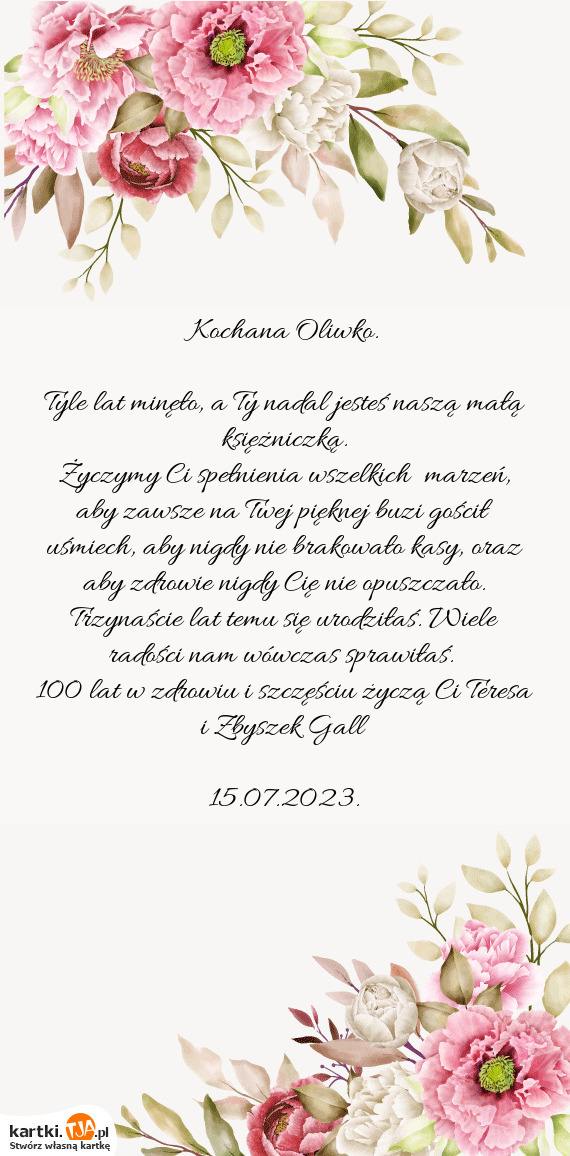 Kochana Oliwko.
Tyle lat minęło, a Ty nadal jesteś naszą małą
księżniczką.
Życzymy Ci spełnienia wszelkich marzeń,
aby zawsze na Twej pięknej buzi gościł
uśmiech, aby nigdy nie brakowało kasy, oraz
aby zdrowie nigdy Cię nie opuszczało.
Trzynaście lat temu się urodziłaś. Wiele
radości nam wówczas sprawiłaś.
100 lat w zdrowiu i szczęściu życzą Ci Teresa
i Zbyszek Gall
15.07.2023.
kartki.TJA.pl
Stwórz własną kartkę